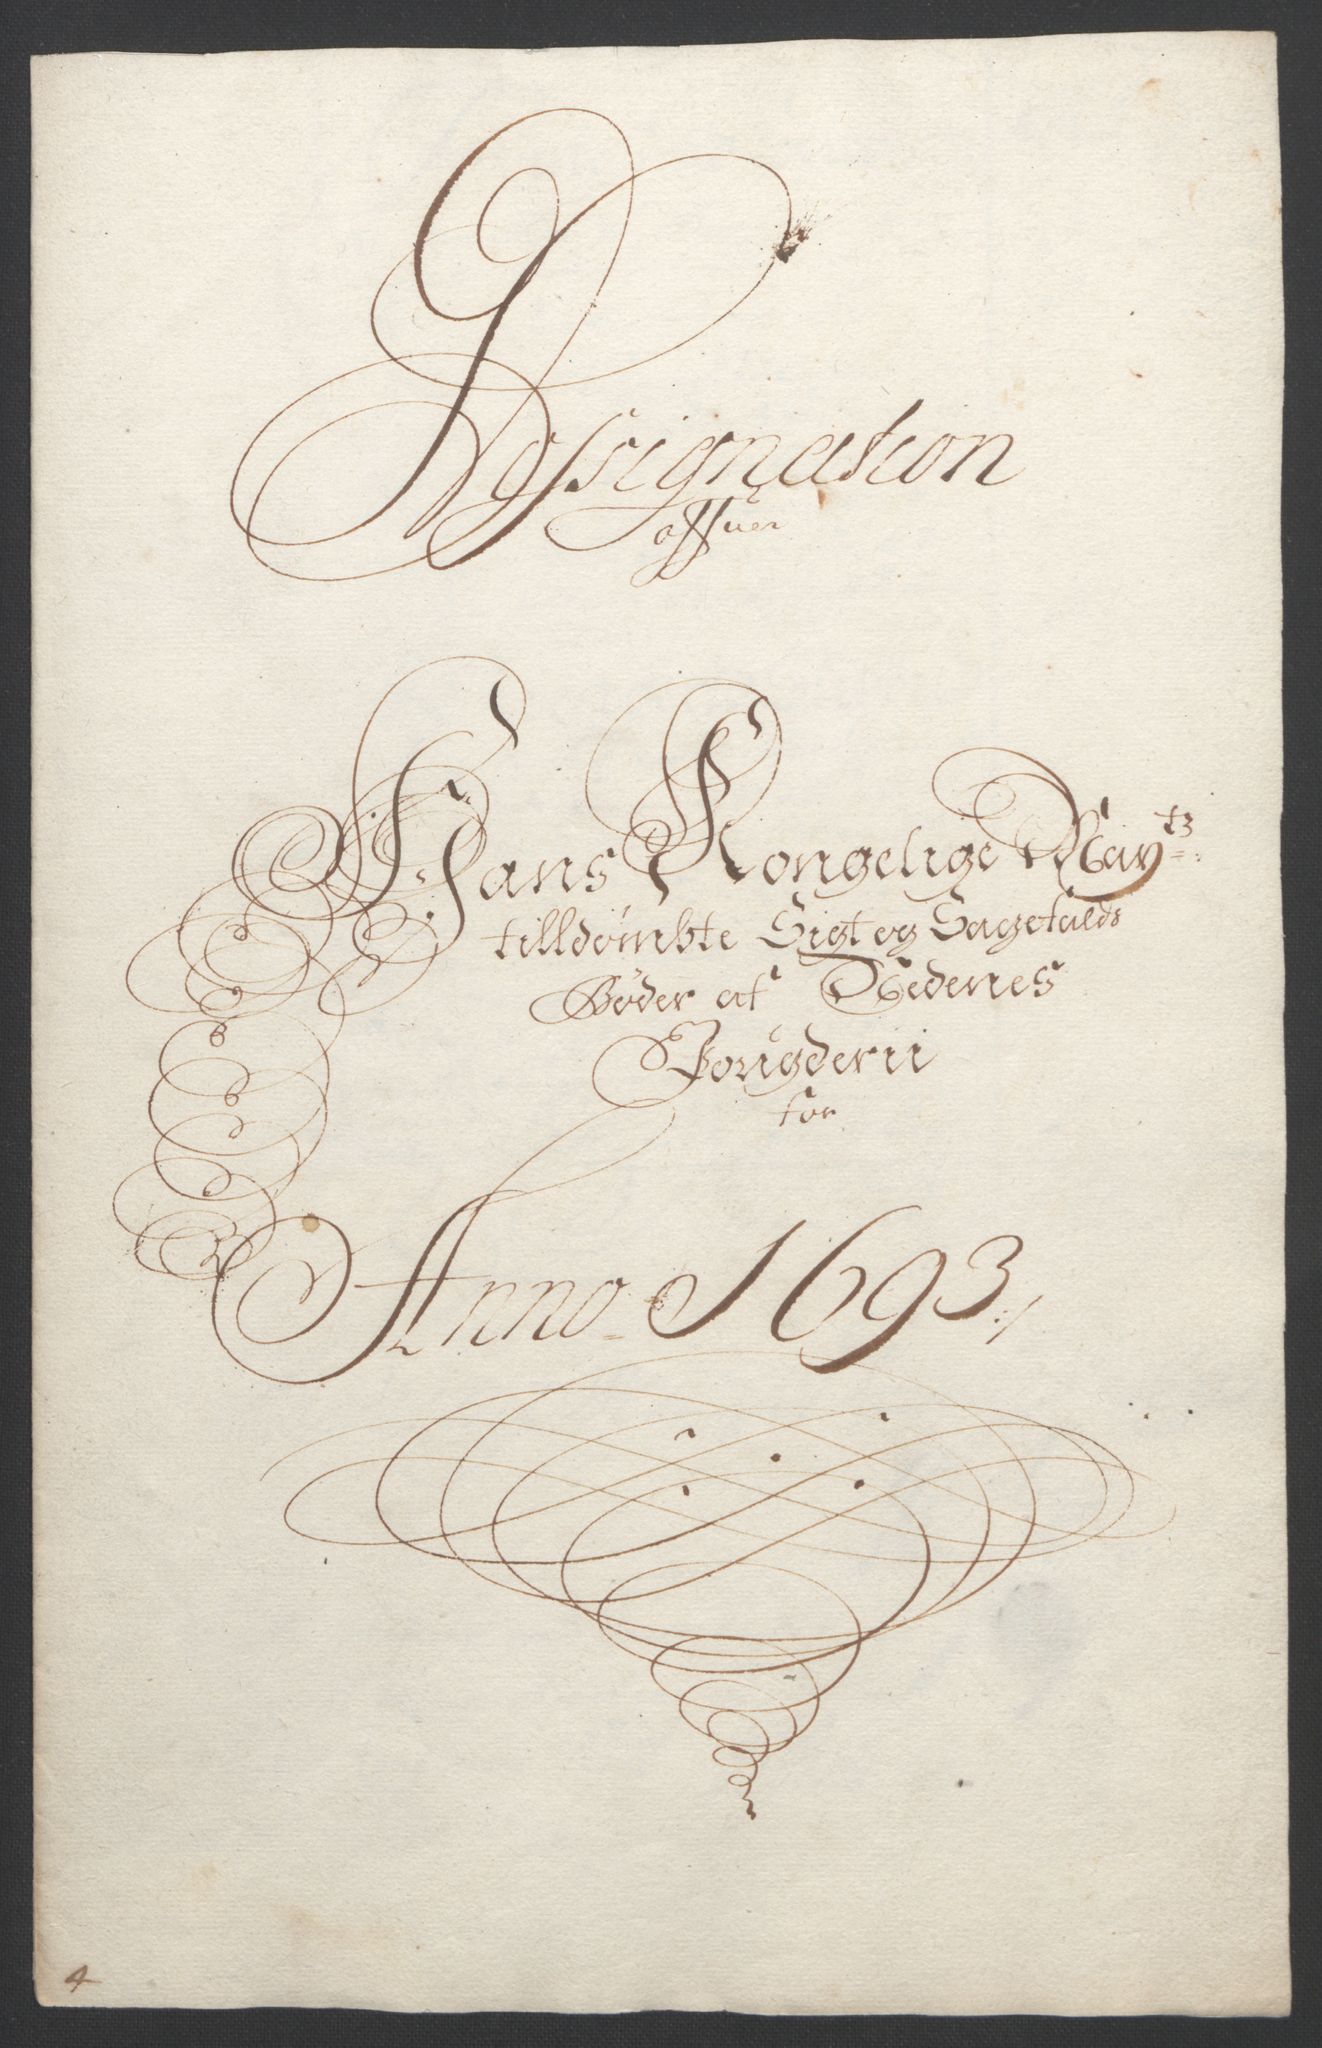 Designation
offuer
Hans Kongelige Mayts:
tilldømbte Sigt og Sagefalds
Bøder af Nedenes
Fougderii
for
Anno 1693
4